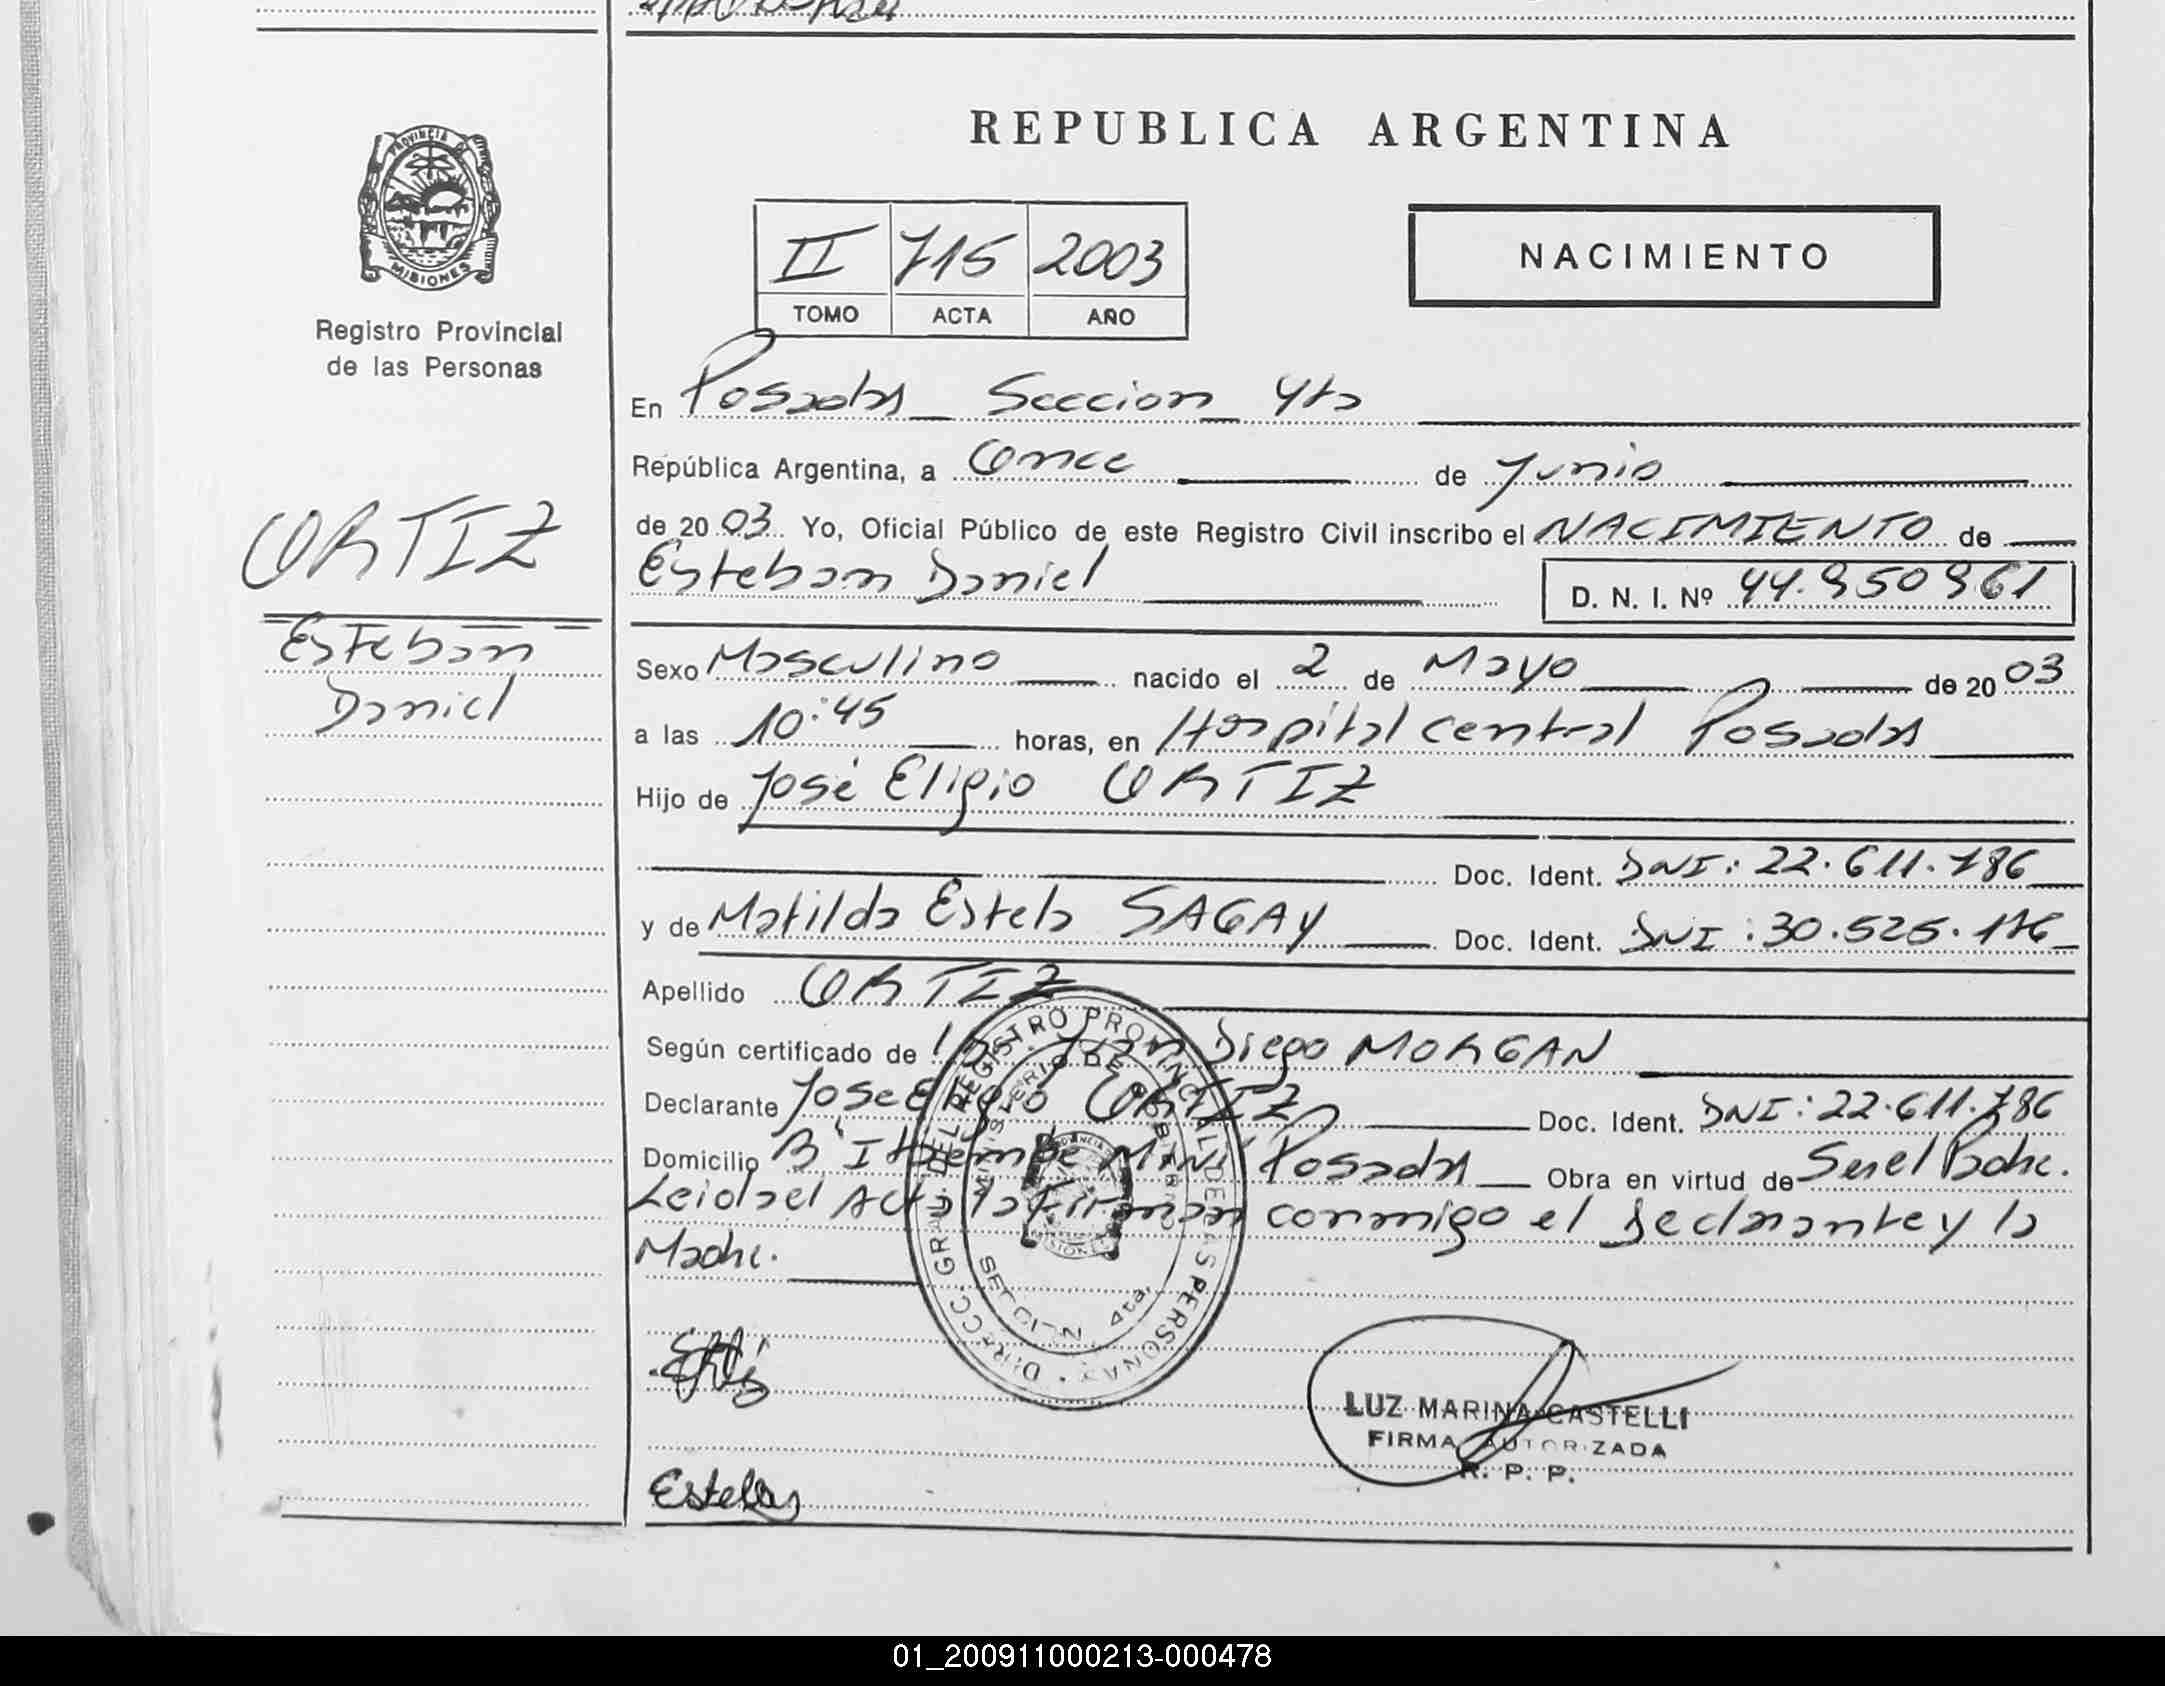 REPUBLICA ARGENTINA
PROVINCIA DE
MISIONES
Registro Provincial
de las Personas
II 715 2003
TOMO ACTA AÑO
NACIMIENTO
En Posadas Seccion 4ta
República Argentina, a Once de Junio
de 2003. Yo, Oficial Público de este Registro Civil inscribo el NACIMIENTO de
Esteban Daniel D. N. I. Nº 44.950961
ORTIZ
Esteban
Daniel
Sexo Masculino nacido el 2 de Mayo de 2003
a las 10:45 horas, en Hospital central Posadas
Hijo de José Eligio ORTIZ
Doc. Ident. DNI: 22.611.786
y de Matilda Estela SAGAY Doc. Ident. DNI: 30.525.176
Apellido ORTIZ
Según certificado de Diego MORGAN
Declarante Jose Eligio ORTIZ Doc. Ident. DNI: 22.611.786
Domicilio B° Itaembe Mini Posadas Obra en virtud de Ser el Padre.
Leida el Acta la Firman conmigo el Declarante y la
Madre.
DIRECC. GRAL. DEL REGISTRO PROVINCIAL DE LAS PERSONAS
MINISTERIO DE GOBIERNO
SECCION 4ta.
LUZ MARINA CASTELLI
FIRMA AUTORIZADA
R. P. P.
Estela
01_200911000213-000478